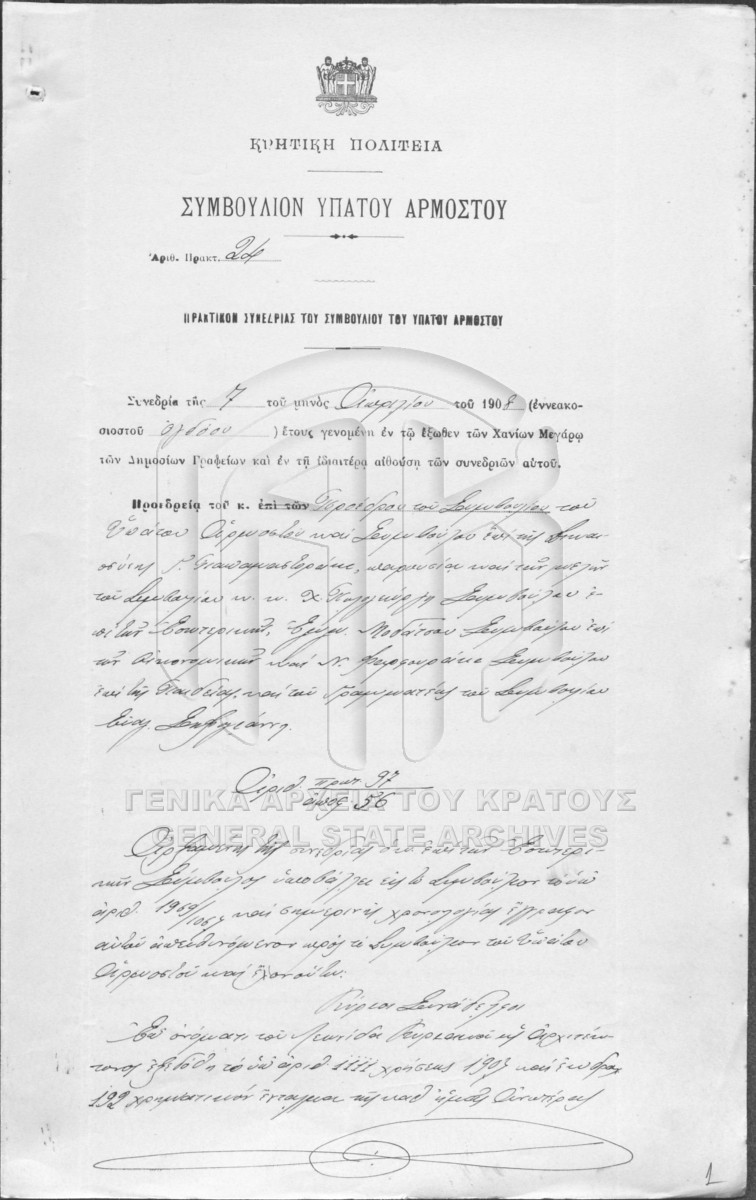 ΚΡΗΤΙΚΗ ΠΟΛΙΤΕΙΑ
ΣΥΜΒΟΥΛΙΟΝ ΥΠΑΤΟΥ ΑΡΜΟΣΤΟΥ
Ἀριθ. Πρακτ. 24
ΠΡΑΚΤΙΚΟΝ ΣΥΝΕΔΡΙΑΣ ΤΟΥ ΣΥΜΒΟΥΛΙΟΥ ΤΟΥ ΥΠΑΤΟΥ ΑΡΜΟΣΤΟΥ
Συνεδρία τῆς 7 τοῦ μηνὸς Ἀπριλίου τοῦ 1908 (ἐννεακο-
σιοστοῦ ὀγδόου ) ἔτους γενομένη ἐν τῷ ἔξωθεν τῶν Χανίων Μεγάρῳ
τῶν Δημοσίων Γραφείων καὶ ἐν τῇ ἰδιαιτέρᾳ αἰθούσῃ τῶν συνεδριῶν αὐτοῦ.
Προεδρείᾳ τοῦ κ. ἐπὶ τῶν Προέδρου τοῦ Συμβουλίου τοῦ
Ὑπάτου Ἁρμοστοῦ καὶ Συμβούλου ἐπὶ τῆς Δικαι
οσύνης Γ. Παπαμαστοράκη, παρουσίᾳ καὶ τῶν μελῶν
τοῦ Συμβουλίου κ. κ. Χ Πωλογεώργη Συμβούλου ἐ-
πὶ τῶν Ἐσωτερικῶν, Ἐμμ. Μοδάτσου Συμβούλου ἐπὶ
τῶν Οἰκονομικῶν καὶ Ν. Συμβούλου
ἐπὶ τῆς Παιδείας, καὶ τοῦ Γραμματέως τοῦ Συμβουλίου
Ἀριθ. πρωτ. 97
ἀποφ. 56
ΓΕΝΙΚΑ ΑΡΧΕΙΑ ΤΟΥ ΚΡΑΤΟΥΣ
GENERAL STATE ARCHIVES
Ἀρξαμένης τῆς συνεδρίας ὁ ἐπὶ τῶν Ἐσωτερι-
κῶν Σύμβουλος ὑποβάλλει εἰς τὸ Συμβούλιον τὸ ὑπ'
ἀριθ. καὶ σημερινῆς χρονολογίας ἔγγραφον
αὐτοῦ ἀπευθυνόμενον πρὸς τὸ Συμβούλιον τοῦ Ὑπάτου
Ἁρμοστοῦ καὶ ἔχον οὕτω:
Κύριοι Συνάδελφοι
Ἐπ' ὀνόματι τοῦ Λεωνίδα Ἀρχιτέκ-
τονος ἐξεδόθη τὸ ὑπ' ἀριθ 1111 χρήσεως 1907 καὶ ἐκ δρχ
192 χρηματικὸν ἔνταλμα τῆς καθ' ἡμᾶς Ἀνωτέρας
1